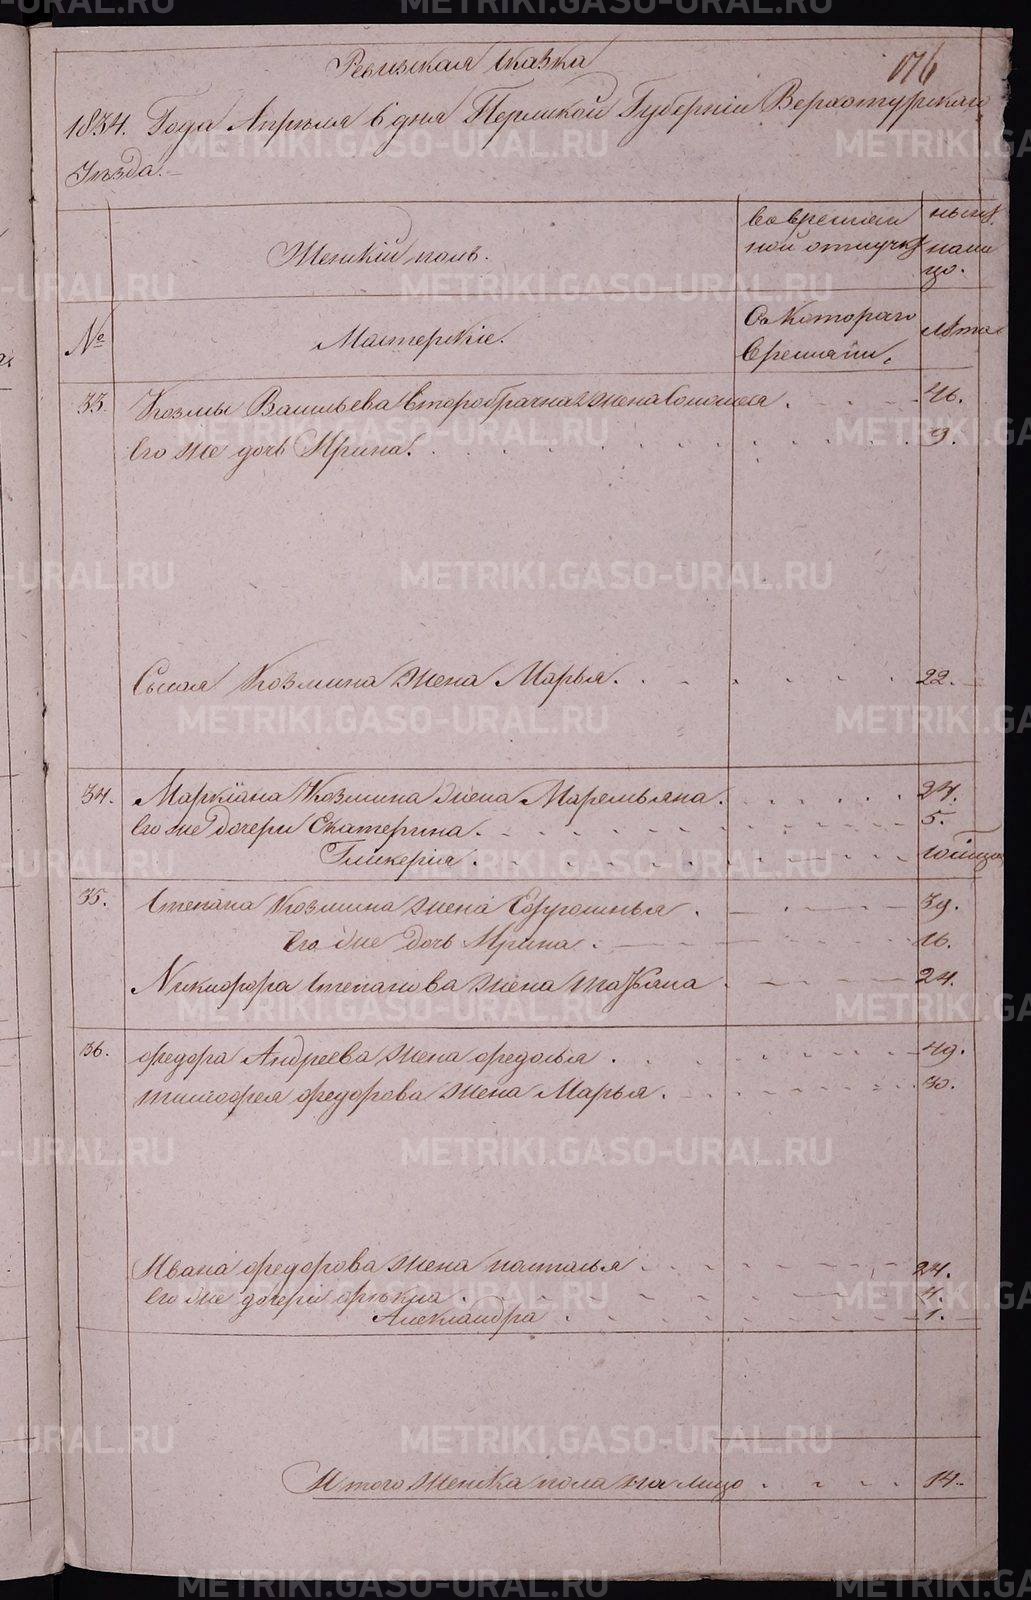 Ревизская сказка
176
1834. Года Апреля 6 дня Пермской Губернии Верхотурскаго
Уезда.
№
Женский полъ.
во времен
ной отлучке
ныне
нали
цо.
Мастерскіе.
Съ Котораго
времени.
Лета
33. Козмы Васильева второбрачная жена Соломея . 46.
Его же дочь Ирина. 9.
Сысоя Козмина жена Марья. 22.
34. Маркіана Козмина жена Маремьяна. 24.
Его же дочери Екатерина. 5.
Гликерія.
35. Степана Козмина жена Ефросинья . 39.
Его же дочь Ирина. 16.
Никифора Степанова жена татьяна 24.
36. федора Андреева жена федосья . 49.
тимофея федорова жена Марья. 30.
Ивана федорова жена наталья 24.
Его же дочери фекла. 4.
Александра 1.
Итого женска пола на лицо 14.
METRIKI.GASO-URAL.RU